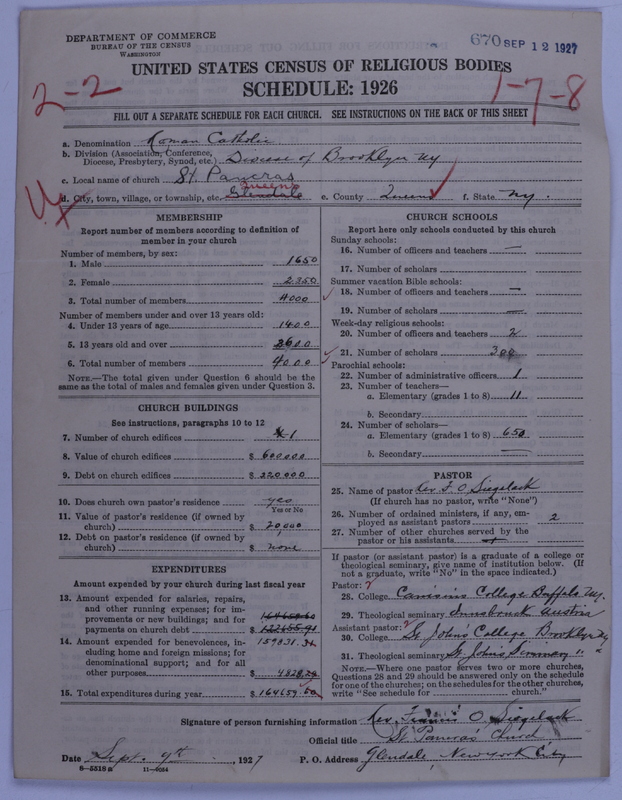 DEPARTMENT OF COMMERCE
BUREAU OF THE CENSUS
WASHINGTON
670 SEP 12 1927
UNITED STATES CENSUS OF RELIGIOUS BODIES
SCHEDULE: 1926
2-2
1-7-8
FILL OUT A SEPARATE SCHEDULE FOR EACH CHURCH. SEE INSTRUCTIONS ON THE BACK OF THIS SHEET
a. Denomination Roman Catholic
b. Division (Association, Conference, Diocese, Presbytery, Synod, etc.) Diocese of Brooklyn NY
c. Local name of church St. Pancras
Queens
d. City, town, village, or township, etc. Glendale e. County Queens f. State NY.
MEMBERSHIP
Report number of members according to definition of
member in your church
Number of members, by sex:
1. Male 1650
2. Female 2350
3. Total number of members 4000
Number of members under and over 13 years old:
4. Under 13 years of age 1400
5. 13 years old and over 2600
6. Total number of members 4000
NOTE.—The total given under Question 6 should be the
same as the total of males and females given under Question 3.
CHURCH BUILDINGS
See instructions, paragraphs 10 to 12
7. Number of church edifices 1
8. Value of church edifices $ 600000
9. Debt on church edifices $ 220,000
10. Does church own pastor's residence yes
Yes or No
11. Value of pastor's residence (if owned by
church) $ 20,000
12. Debt on pastor's residence (if owned by
church) $ none
EXPENDITURES
Amount expended by your church during last fiscal year
13. Amount expended for salaries, repairs,
and other running expenses; for im-
provements or new buildings; and for
payments on church debt $ 159831.31
14. Amount expended for benevolences, in-
cluding home and foreign missions; for
denominational support; and for all
other purposes $ 4828.29
15. Total expenditures during year $ 164659.60
CHURCH SCHOOLS
Report here only schools conducted by this church
Sunday schools:
16. Number of officers and teachers —
17. Number of scholars
Summer vacation Bible schools:
18. Number of officers and teachers —
19. Number of scholars —
Week-day religious schools:
20. Number of officers and teachers 2
21. Number of scholars 300
Parochial schools:
22. Number of administrative officers 1
23. Number of teachers—
a. Elementary (grades 1 to 8) 11
b. Secondary
24. Number of scholars—
a. Elementary (grades 1 to 8) 650
b. Secondary —
PASTOR
25. Name of pastor Rev. F. O. Siegelack
(If church has no pastor, write "None")
26. Number of ordained ministers, if any, em-
ployed as assistant pastors 2
27. Number of other churches served by the
pastor or his assistants
If pastor (or assistant pastor) is a graduate of a college or
theological seminary, give name of institution below. (If
not a graduate, write "No" in the space indicated.)
Pastor:
28. College Canisius College Buffalo Ny.
29. Theological seminary Innsbruck Austria
Assistant pastor:
30. College St John's College Brooklyn Ny
31. Theological seminary St. John's Seminary " "
NOTE.—Where one pastor serves two or more churches,
Questions 28 and 29 should be answered only on the schedule
for one of the churches; on the schedules for the other churches,
write "See schedule for church."
Signature of person furnishing information Rev. Francis O. Siegelack
Official title St. Pancras' Church
Date Sept. 9th, 1927 P. O. Address Glendale, New York City
6-5518 a 11-9024